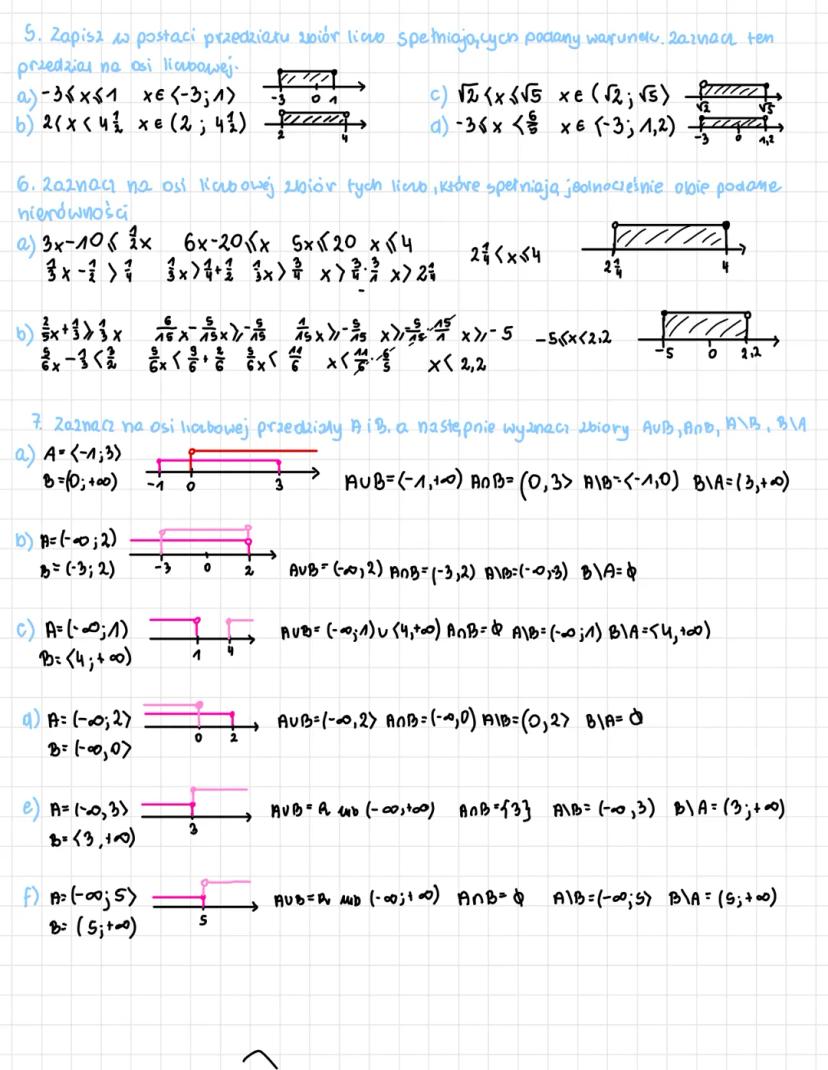 5. Zapisz w postaci przedziału zbiór liczb spełniających podany warunek. Zaznacz ten
przedział na osi liczbowej.
a) -3≤x≤1 x∈<-3;1> -3 0 1
c) √2<x≤√5 x∈(√2;√5> √2 √5
b) 2<x<4½ x∈(2;4½) 2 4
d) -3≤x<6/5 x∈<-3;1,2) -3 0 1,2
6. Zaznacz na osi liczbowej zbiór tych liczb, które spełniają jednocześnie obie podane
nierówności
a) 3x-10≤½x 6x-20≤x 5x≤20 x≤4
⅓x-½>¼ ⅓x>¼+½ ⅓x>¾ x>¾·3/1 x>2¼
2¼<x≤4
2¼ 4
b) 2/5x+⅓≥⅓x 6/15x-5/15x≥-5/15 1/15x≥-5/15 x≥-5/15·15/1 x≥-5 -5≤x<2,2
5/6x-3<3/2 5/6x<9/6+2/6 5/6x<11/6 x<11/6·6/5 x<2,2
-5 0 2,2
7. Zaznacz na osi liczbowej przedziały A i B, a następnie wyznacz zbiory A∪B, A∩B, A\B, B\A
a) A=<-1;3>
B=(0;+∞) -1 0 3 A∪B=<-1,+∞) A∩B=(0,3> A\B=<-1,0) B\A=(3,+∞)
b) A=(-∞;2)
B=(-3;2) -3 0 2 A∪B=(-∞,2) A∩B=(-3,2) A\B=(-∞,3) B\A=ϕ
c) A=(-∞;1) A∪B=(-∞;1)∪<4,+∞) A∩B=ϕ A\B=(-∞;1) B\A=<4,+∞)
B=<4;+∞) 1 4
d) A=(-∞;2> A∪B=(-∞,2> A∩B=(-∞,0) A\B=(0,2> B\A=ϕ
B=(-∞,0> 0 2
e) A=(-∞,3> A∪B=R lub (-∞,+∞) A∩B={3} A\B=(-∞,3) B\A=(3;+∞)
B=<3,+∞) 3
f) A=(-∞;5> A∪B=R lub (-∞;+∞) A∩B=ϕ A\B=(-∞;5> B\A=(5;+∞)
B=(5;+∞) 5